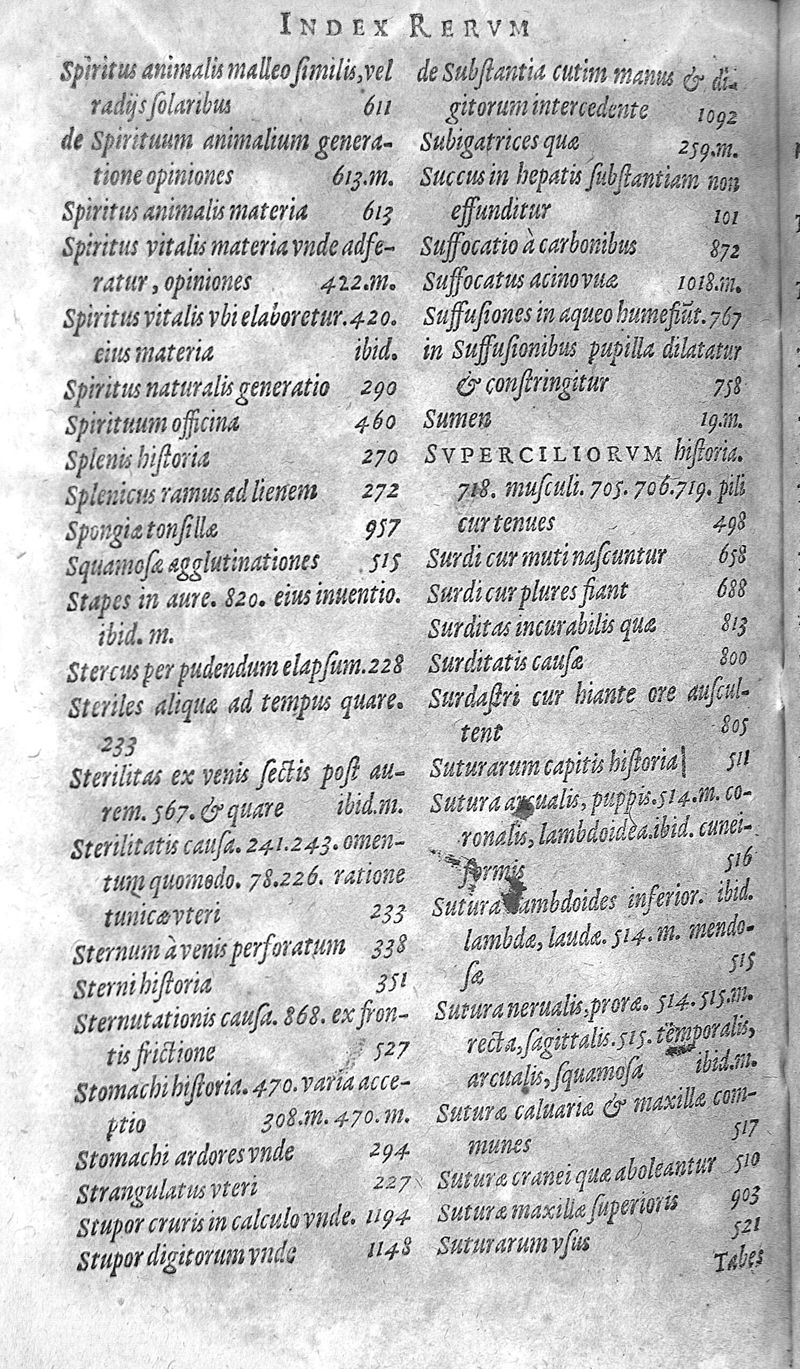 INDEX RERVM
Spiritus animalis malleo ſimilis, vel
radijs ſolaribus 611
de Spirituum animalium genera-
tione opiniones 613.m.
Spiritus animalis materia 613
Spiritus vitalis materia vnde adfe-
ratur, opiniones 422.m.
Spiritus vitalis vbi elaboretur. 420.
eius materia ibid.
Spiritus naturalis generatio 290
Spirituum officina 460
Splenis hiſtoria 270
Splenicus ramus ad lienem 272
Spongiæ tonſillæ 957
Squamoſæ agglutinationes 515
Stapes in aure. 820. eius inuentio.
ibid. m.
Stercus per pudendum elapſum. 228
Steriles aliquæ ad tempus quare.
233
Sterilitas ex venis ſectis poſt au-
rem. 567. & quare ibid.m.
Sterilitatis cauſa. 241.243. omen-
tum quomodo. 78.226. ratione
tunicæ vteri 233
Sternum à venis perforatum 338
Sterni hiſtoria 351
Sternutationis cauſa. 868. ex fron-
tis frictione 527
Stomachi hiſtoria. 470. varia acce-
ptio 308.m. 470.m.
Stomachi ardores vnde 294
Strangulatus vteri 227
Stupor cruris in calculo vnde. 1194
Stupor digitorum vnde 1148
de Subſtantia cutim manus & di-
gitorum intercedente 1092
Subigatrices quæ 259.m.
Succus in hepatis ſubſtantiam non
effunditur 101
Suffocatio à carbonibus 872
Suffocatus acino vuæ 1018.m.
Suffuſiones in aqueo humefiũt. 767
in Suffuſionibus pupilla dilatatur
& conſtringitur 758
Sumen 19.m.
SVPERCILIORVM hiſtoria.
718. muſculi. 705. 706. 719. pili
cur tenues 498
Surdi cur muti naſcuntur 658
Surdi cur plures fiant 688
Surditas incurabilis quæ 813
Surditatis cauſæ 800
Surdaſtri cur hiante ore auſcul-
tent 805
Suturarum capitis hiſtoria 511
Sutura arcualis, puppis. 514.m. co-
ronalis, lambdoidea.ibid. cunei-
formis 516
Sutura lambdoides inferior. ibid.
lambdæ, laudæ. 514. m. mendo-
ſæ 515
Sutura nerualis, proræ. 514. 515.m.
recta, ſagittalis. 515. temporalis,
arcualis, ſquamoſa ibid.m.
Suturæ caluariæ & maxillæ com-
munes 517
Suturæ cranei quæ aboleantur 510
Suturæ maxillæ ſuperioris 903
Suturarum vſus 521
Tabes